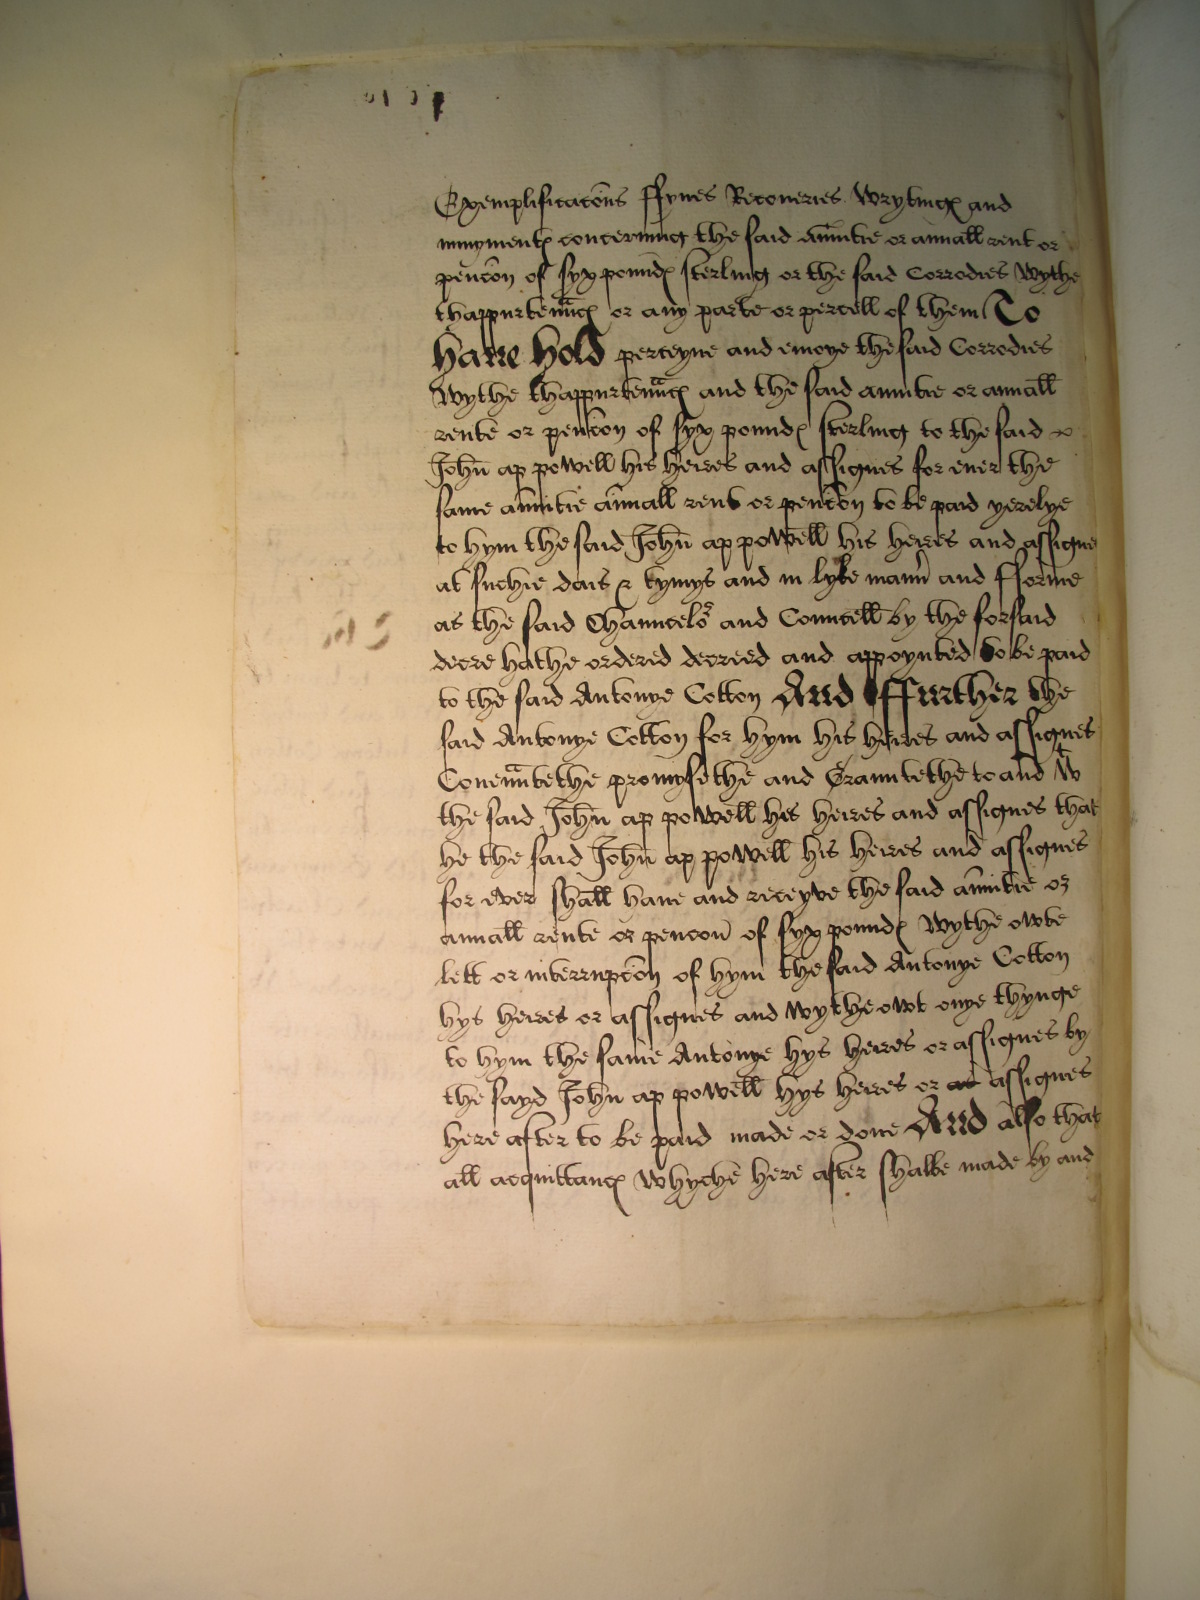 Exemplificacōns ffynes Recoueries Wrytingꝭ and
mynymentꝭ concernyng the said an̄uitie or annuall rent or
penc̄on of syx poundꝭ sterling or the said Corrodies Wythe
thappurtenn̄cꝭ or any parte or percell of them To
haue hold perceyue and enioye the said Corrodies
Wythe thappurtenn̄cꝭ and the said annuitie or annuall
rente or penc̄on of syx poundꝭ sterling to the said
John̄ ap powell his heires and assignes for euer the
same an̄uitie an̄uall rent or penc̄on to be paid yerelye
to hym the said John̄ ap powell his heires and assignes
at suche dais & tymys and in lyke man̄ and fforme
as the said Chauncelor and Councell by the forsaid
decre hathe ordered decreed and appoynted to be paid
to the said Antonye Cotton And ffurther the
said Antonye Cotton for hym his heires and assignes
Couenn̄tethe promysethe and Grauntethe to and wt
the said John̄ ap powell his heires and assignes that
he the said John̄ ap powell his heires and assignes
for ever shall haue and receyve the said an̄uitie or
annuall rente or pencon̄ of syx poundꝭ Wythe owte
lett or interrupc̄on of hym the said Antonye Cotton
hys heires or assignes and Wythe owt onye thynge
to hym the same Antonye hys heires or assignes by
the sayd John ap powell hys heires or as assignes
here after to be paid made or done And also that
all acquittancꝭ Whyche here after shalbe made by and